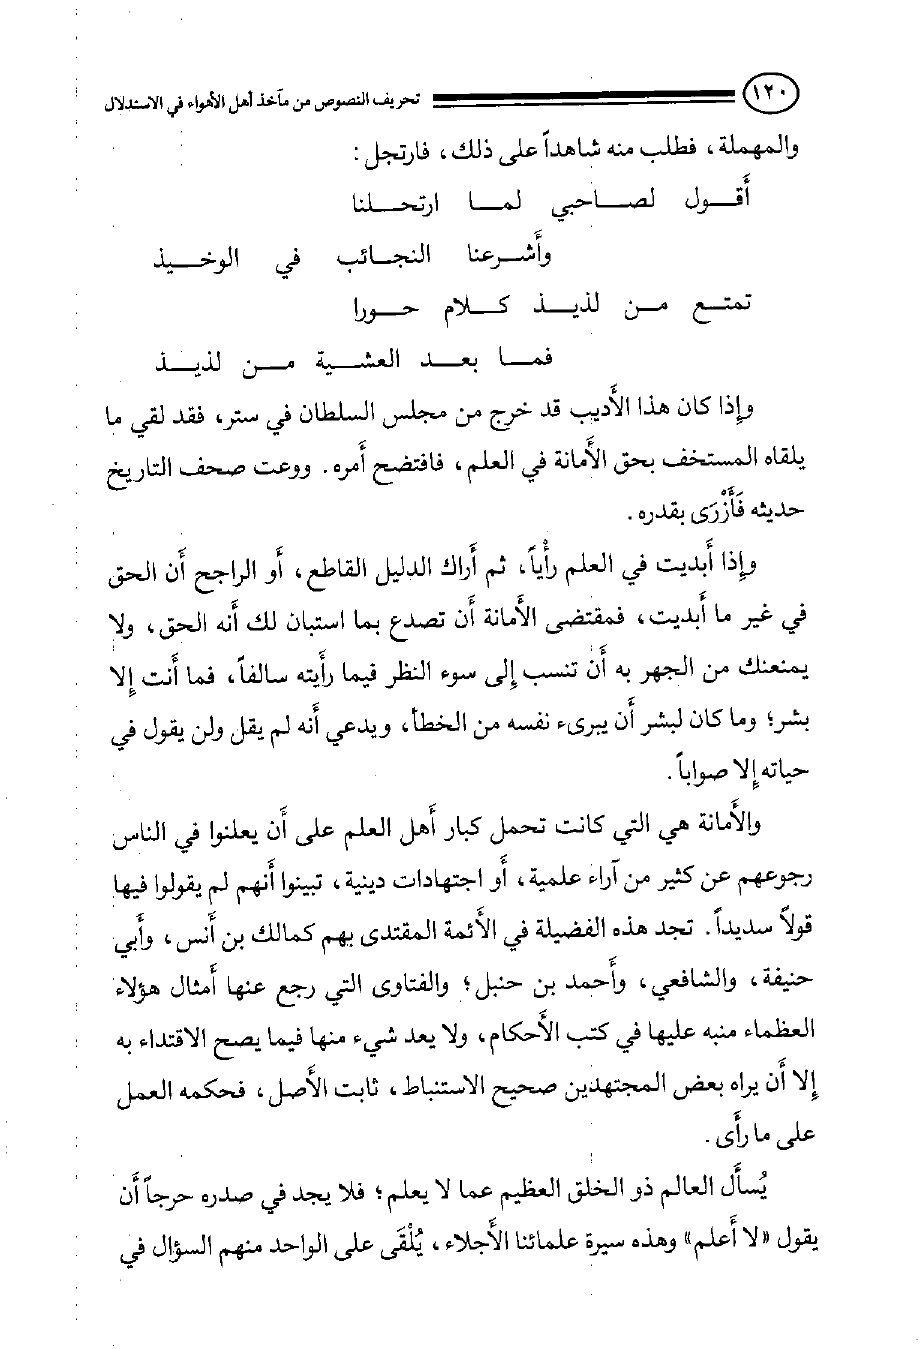 ١٢٠ تحريف النصوص من مآخذ أهل الأهواء في الاستدلال
والمهملة، فطلب منه شاهداً على ذلك، فارتجل:
أقـــول لصـــاحبي لمـــا ارتحـــلنا
وأشـــرعنا النجـــائب في الوخـــيذ
تمتـــع مـــن لذيـــذ كـــلام حـــورا
فمـــا بعـــد العشـــية مـــن لذيـــذ
وإذا كان هذا الأديب قد خرج من مجلس السلطان في ستر، فقد لقي ما
يلقاه المستخف بحق الأمانة في العلم، فافتضح أمره. ووعت صحف التاريخ
حديثه فَأَزْرَى بقدره.
وإذا أبديت في العلم رأياً، ثم أراك الدليل القاطع، أو الراجح أن الحق
في غير ما أبديت، فمقتضى الأمانة أن تصدع بما استبان لك أنه الحق، ولا
يمنعنك من الجهر به أن تنسب إلى سوء النظر فيما رأيته سالفاً، فما أنت إلا
بشر؛ وما كان لبشر أن يبرىء نفسه من الخطأ، ويدعي أنه لم يقل ولن يقول في
حياته إلا صواباً.
والأمانة هي التي كانت تحمل كبار أهل العلم على أن يعلنوا في الناس
رجوعهم عن كثير من آراء علمية، أو اجتهادات دينية، تبينوا أنهم لم يقولوا فيها
قولاً سديداً. تجد هذه الفضيلة في الأئمة المقتدى بهم كمالك بن أنس، وأبي
حنيفة، والشافعي، وأحمد بن حنبل؛ والفتاوى التي رجع عنها أمثال هؤلاء
العظماء منبه عليها في كتب الأحكام، ولا يعد شيء منها فيما يصح الاقتداء به
إلا أن يراه بعض المجتهدين صحيح الاستنباط، ثابت الأصل، فحكمه العمل
على ما رأى.
يُسأل العالم ذو الخلق العظيم عما لا يعلم؛ فلا يجد في صدره حرجاً أن
يقول «لا أعلم» وهذه سيرة علمائنا الأجلاء، يُلْقَى على الواحد منهم السؤال في